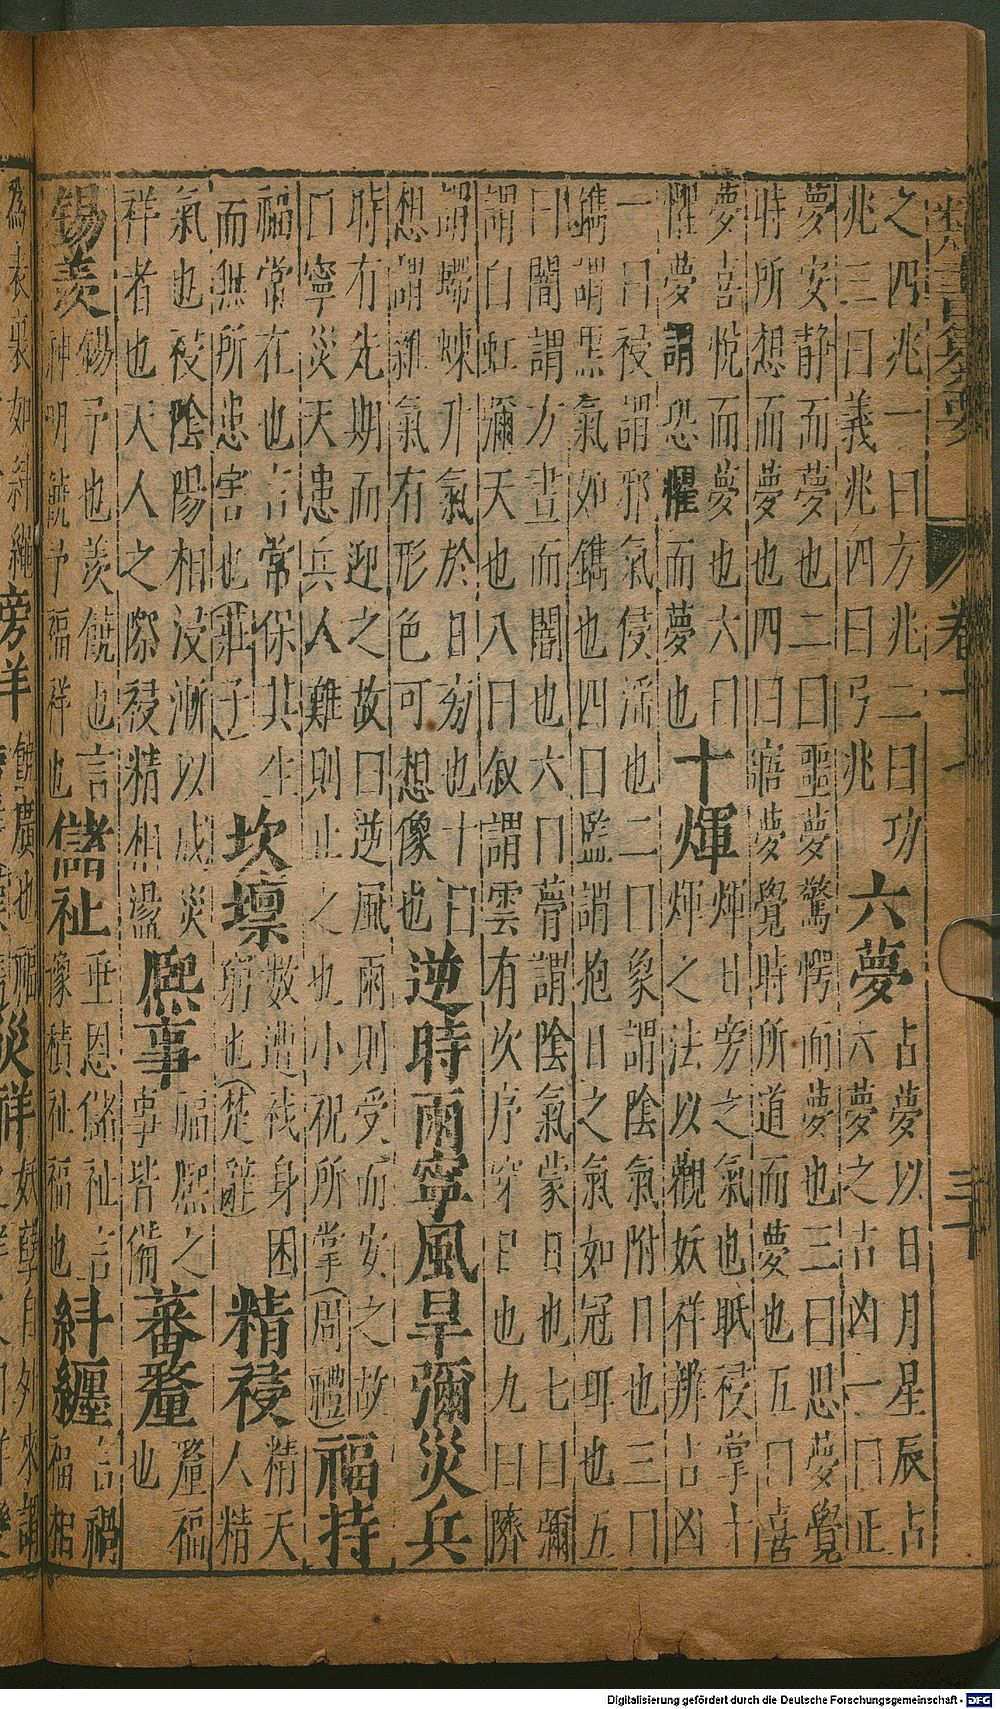 類書纂要 卷十七 三十
之四兆一曰方兆二曰功
兆三曰義兆四曰弓兆
六夢
占夢以日月星辰占
六夢之吉凶一曰正
夢安静而夢也二曰噩夢驚愕而夢也三曰思夢覺
時所想而夢也四曰寤夢覺時所道而夢也五曰喜
夢喜悅而夢也六曰
懼夢謂恐懼而夢也
十煇
煇日旁之氣也眡祲掌十
煇之法以觀妖祥辨吉凶
一曰祲謂邪氣侵滛也二曰象謂陰氣附日也三曰
鐫謂黑氣如鐫也四曰監謂抱日之氣如冠珥也五
曰闇謂方晝而闇也六曰瞢謂陰氣蒙日也七曰彌
謂白虹彌天也八曰叙謂雲有次序穿日也九曰隮
謂螮蝀升氣於日旁也十曰
想謂雜氣有形色可想像也
逆時雨寧風旱彌災兵
時有先期而迎之故曰逆風雨則受而安之故
曰寧災天患兵人難則止之也小祝所掌(周禮)
福持
福常在也言常保其生
而無所患害也(莊子)
坎壈
數遭身困
窮也(楚辭)
精祲
精天
人精
氣也祲陰陽相浸漸以成災
祥者也天人之際祲精相盪
熈事
福熈之
事皆備
蕃釐
釐福
也
錫羨
錫予也羨饒也言
神明饒予福祥也
儲祉
垂恩儲祉言
豫積祉福也
糾纏
言禍
福相
爲表裏如糾繩
旁祥
災祥
妖孽自外來謂
Digitalisierung gefördert durch die Deutsche Forschungsgemeinschaft - DFG